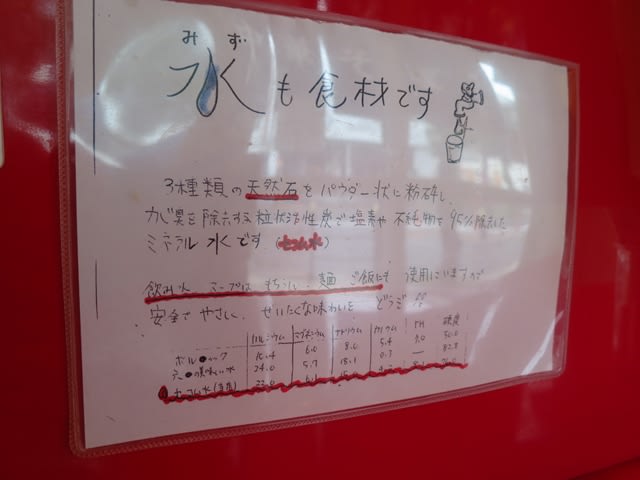 みず
水も食材です
3種類の天然石をパウダー状に粉砕し、
カビ臭を除去する粒状活性炭で塩素や不純物を95%除去した
ミネラル水です
飲み水、スープはもちろん、麺、ご飯にも使用していますので
安全でやさしく、ぜいたくな味わいを どうぞ!!
カルシウム マグネシウム ナトリウム カリウム PH 硬度
ボル●ック 10.4 6.0 8.0 5.4 7.0 50.0
24.0 5.7 15.1 0.3 ― 82.8